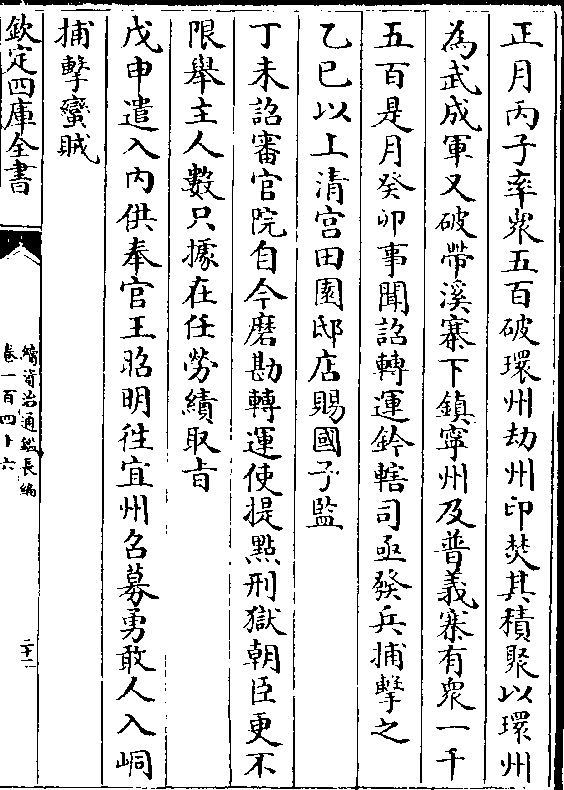 正月丙子率衆五百破環州劫州印焚其積聚以環州
為武成軍又破帶溪寨下鎮寧州及普義寨有衆一千
五百是月癸卯事聞詔轉運鈐轄司亟發兵捕擊之
乙巳以上清宫田園邸店賜國子監
丁未詔審官院自今磨勘轉運使提點刑獄朝臣更不
限舉主人數只據在任勞績取旨
戊申遣入内供奉官王昭明往宜州召募勇敢人入峒
捕擊蠻賊
欽定四庫全書
續資治通鑑長編
卷一百四十六
二十二